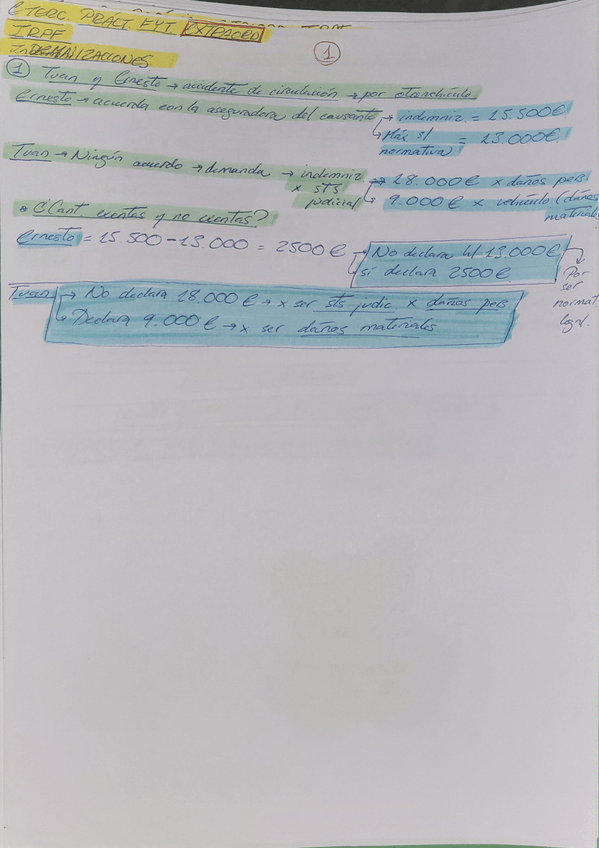 EJERC. PRÁCT EXT EXTRAORD
IRPF
INDEMNIZACIONES
1
① Juan y Ernesto → accidente de circulación → por otro vehículo
Ernesto → acuerda con la aseguradora del causante → indemniz = 15.500€
↳ Máx s/ normativa = 13.000€
Juan → Ningún acuerdo → demanda → indemniz x sts judicial → 18.000€ x daños pers.
↳ 9.000€ x vehículo (daños materiales
* ¿Cant exentas y no exentas?
Ernesto = 15.500 - 13.000 = 2500€ → No declara h/ 13.000€ → Por ser normat legal.
↳ sí declara 2500€
Juan → No declara 18.000€ → x ser sts judic x daños pers
↳ Declara 9.000€ → x ser daños materiales